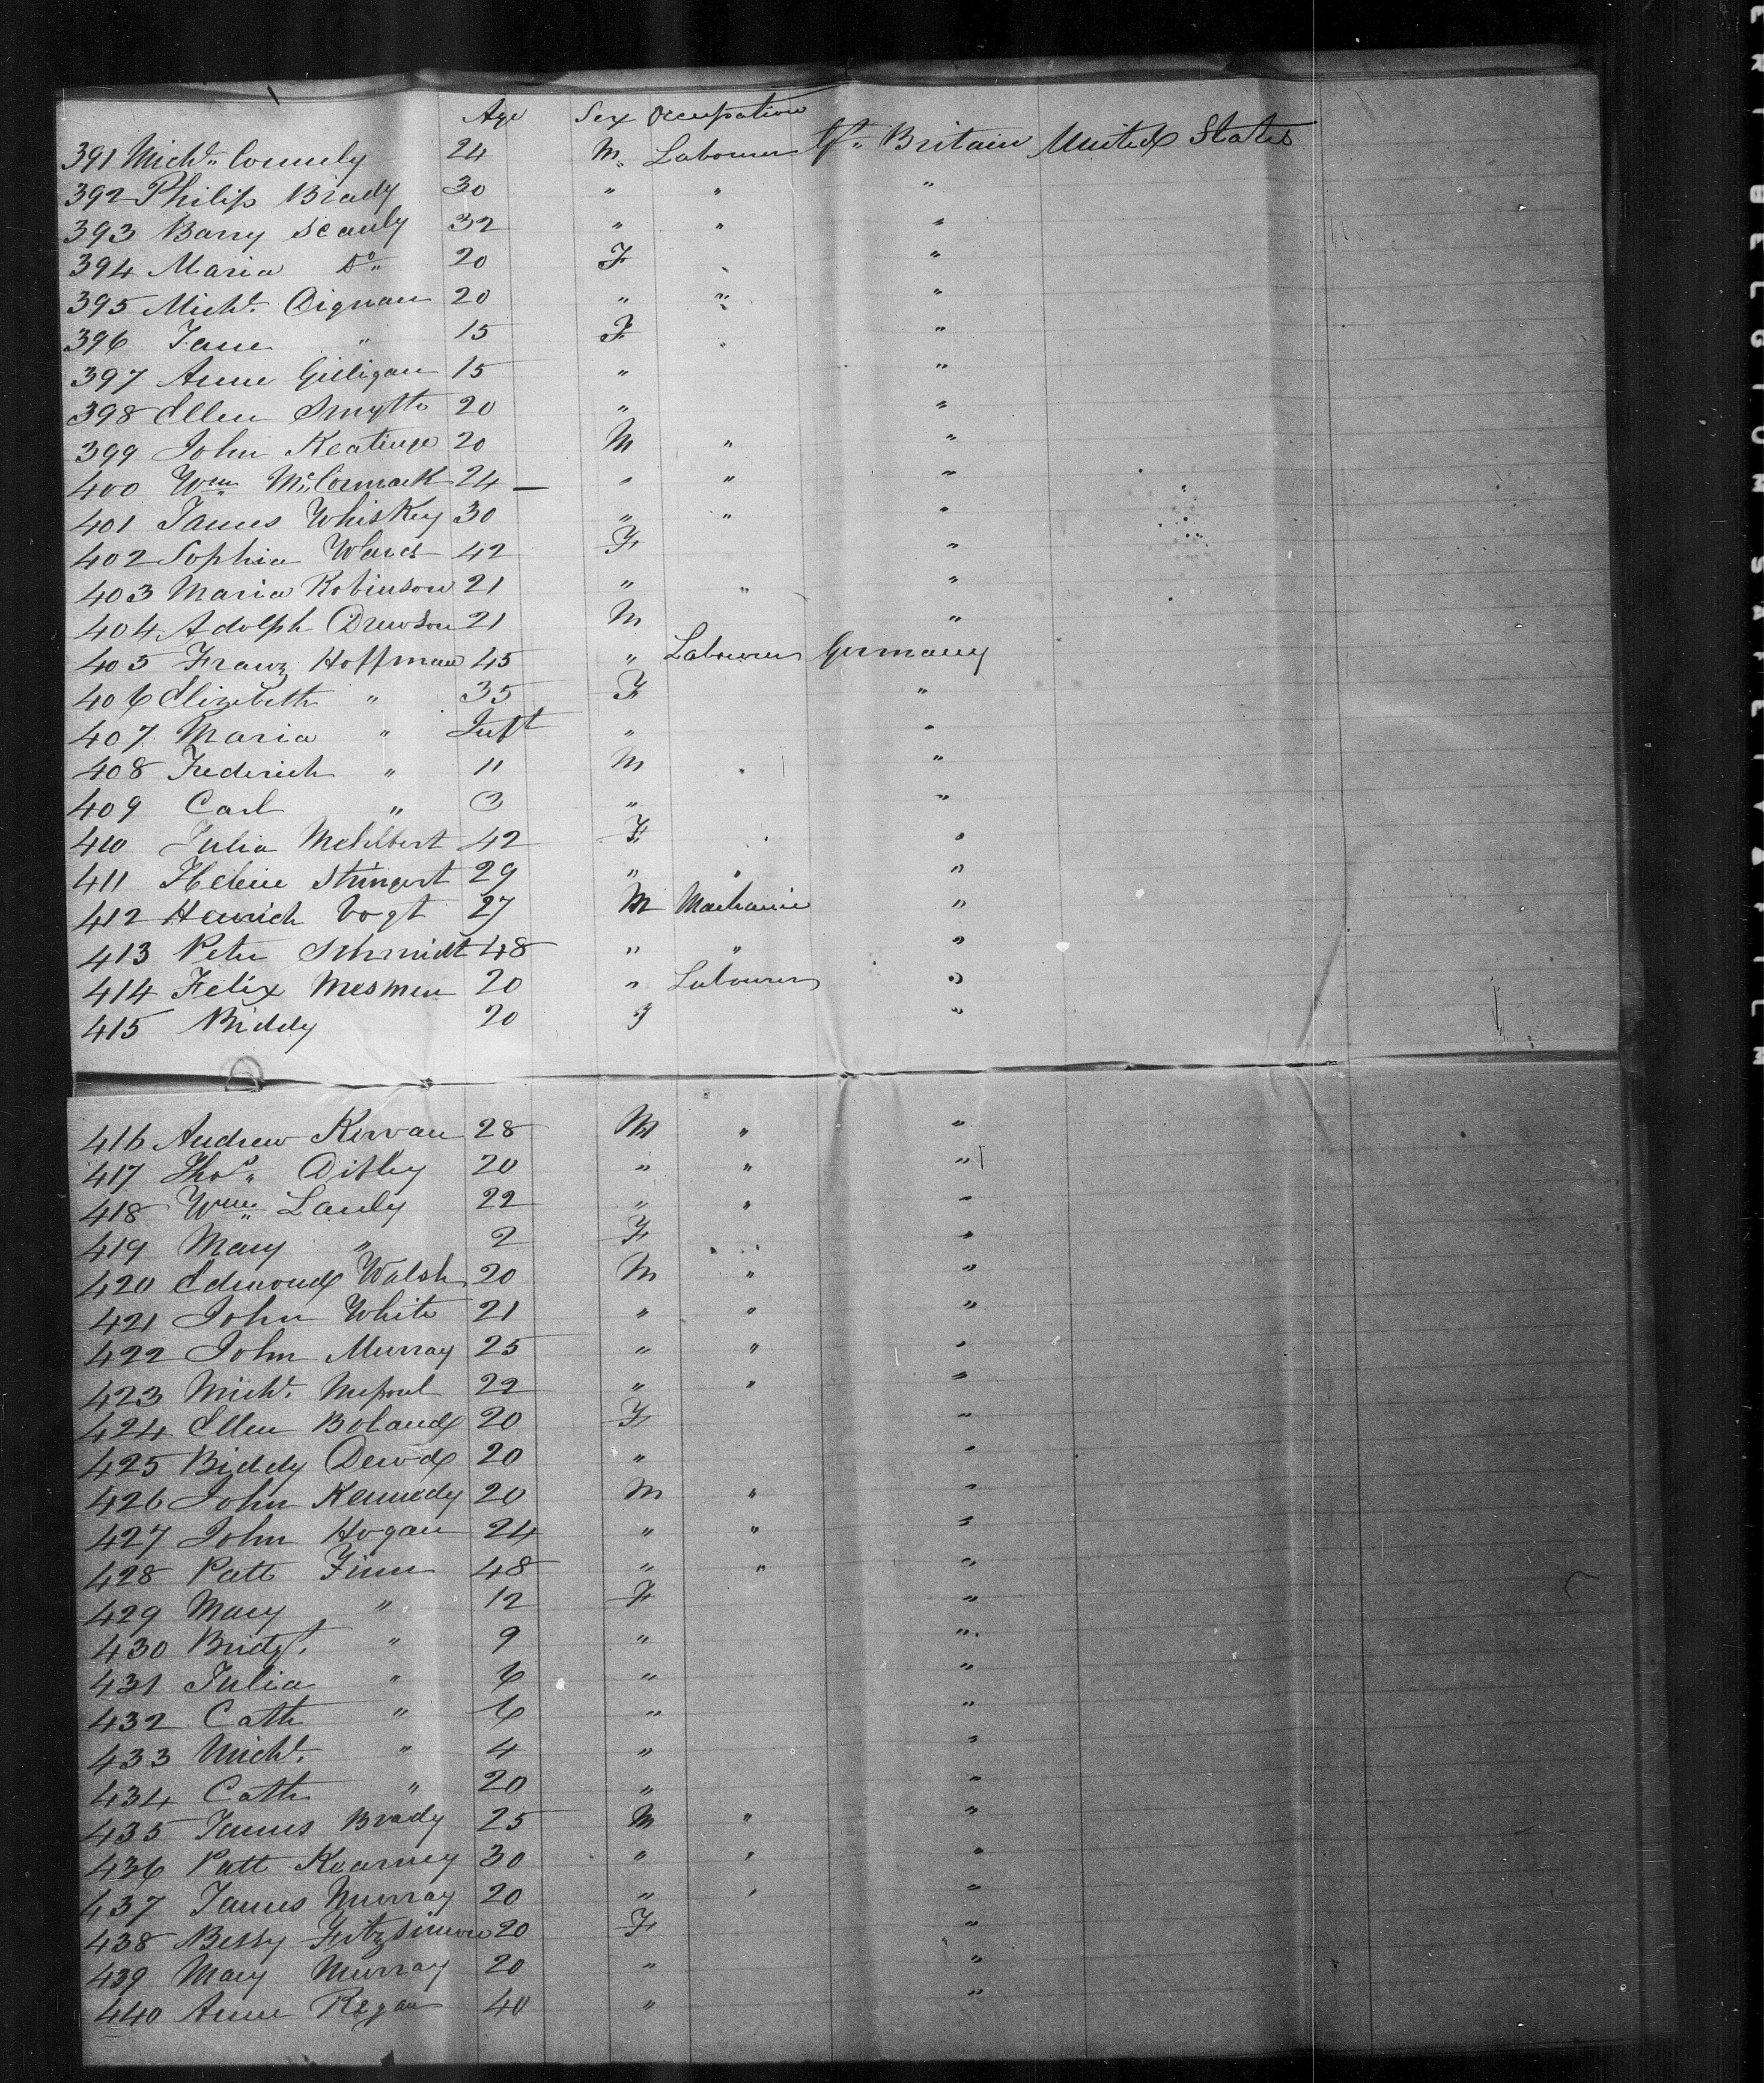 Age Sex Occupation
391 Michl. Connely 24 M. Labourer Gt. Britain United States
392 Philip Brady 30 " " "
393 Barry Scanly 32 " " "
394 Maria Do. 20 F "
395 Michl. Dignan 20 " " "
396 Jane " 15 F "
397 Anne Gilligan 15 " "
398 Ellen Smyth 20 " "
399 John Keatinge 20 M " "
400 Wm. McCormack 24 — " " "
401 James Whiskey 30 " " "
402 Sophia Ward 42 F "
403 Maria Robinson 21 " " "
404 Adolph Drewson 21 M "
405 Franz Hoffman 45 " Labourer Germany
406 Elizebeth " 35 F "
407 Maria " Inft " "
408 Frederich " 11 M "
409 Carl " 3 " "
410 Julia 42 F "
411 Helene 29 " " "
412 Henrich Vogt 27 M Machanic "
413 Peter Schmidt 48 " " "
414 Felix Mesmen 20 " Labourer "
415 Biddy 20 F "
416 Andrew Kirvan 28 M " "
417 Thos. 20 " " "
418 Wm. Lanly 22 " " "
419 Mary " 2 F "
420 Edmond Walsh 20 M " "
421 John White 21 " " "
422 John Murray 25 " " "
423 Michl. 22 " " "
424 Ellen Boland 20 F "
425 Biddy 20 " "
426 John Kennedy 20 M " "
427 John Hogan 24 " " "
428 Patt Finn 48 " " "
429 Mary " 12 F "
430 Bridgt. " 9 " "
431 Julia " 6 " "
432 Cath " 6 " "
433 Michl. " 4 " "
434 Cath " 20 " "
435 James Brady 25 M " "
436 Patt Kearney 30 " " "
437 James Murray 20 " " "
438 Bessy Fitzsimon 20 F "
439 Mary Murray 20 " "
440 Anne Regan 40 " "